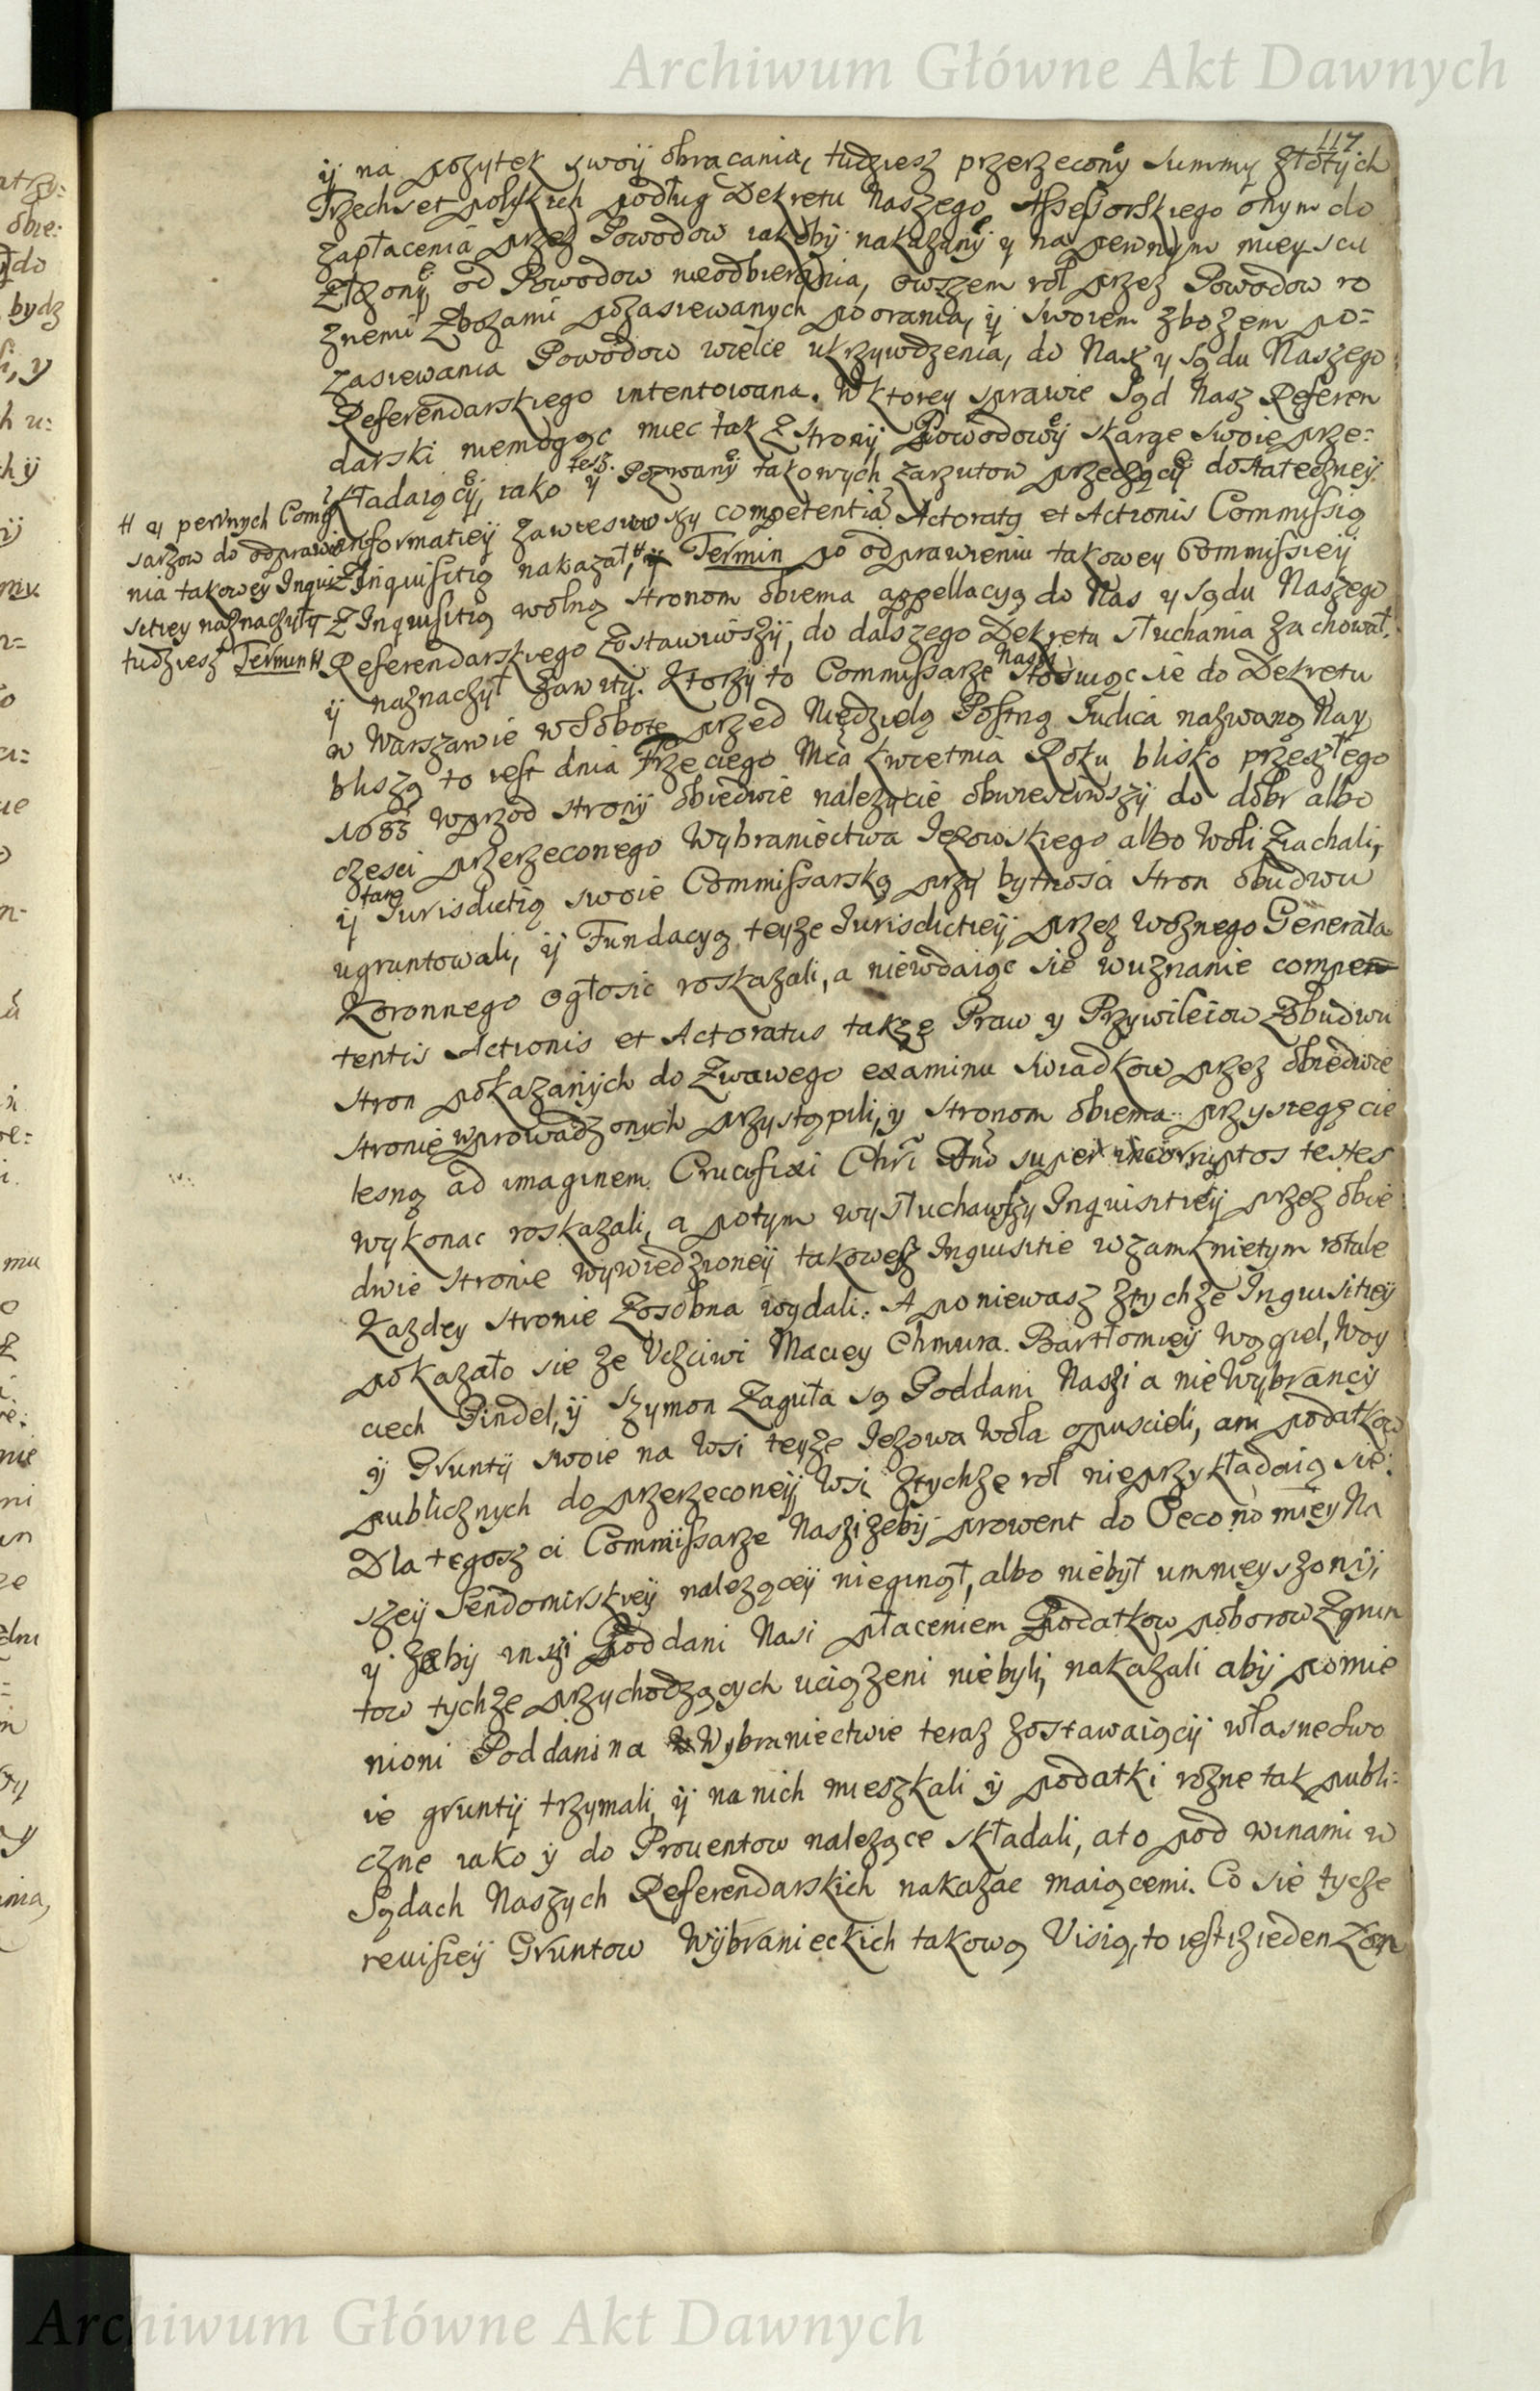 Archiwum Główne Akt Dawnych
117
ij na pozytek swoij obracania, tudziesz przerzeconey Summy złotych
Trzechset polskich podług Dekretu Naszego Assessorskiego onym do
zapłacenia przez Powodow iakobij nakazaneij y na pewnym mieyscu
złozoneij od Powodow nieodbierania, owszem rol przez Powodow ro
znemi zbozami pozasiewanych poorania, ij swoiem zbozem po=
zasiewania Powodow wielce ukrzywdzenia, do Nas y sądu Naszego
Referendarskiego intentowana. W ktorey sprawie Sąd Nasz Referen
darski niemogąc miec tak z strony Powodowey skarge swoię prze=
kładaiąceij, iako tesz y Pozwaneij takowych zarzutow przecząceij dostateczneij
informatieij zawiesiwszy competentią Actoratq et Actionis Commissią
z Inquisitią nakazał, # Termin po odprawieniu takowey Commissieij
z Inquisitią wolną stronom obiema appellacyą do Nas y sądu Naszego
Referendarskiego zostawiwszij, do dalszego Dekretu słuchania zachował,
ij naznaczył zawity. Ktorzij to Commissarze Nasi stosuiąc się do Dekretu
# y pewnych Comis
sarzow do odprawie
nia takowey Inqui
sitiey naznaczył y
tudziesz Termin #
w Warszawie w Sobotę przed Niędzielą Postną Judica nazwaną Nay
bliszą to iest dnia Trzeciego Mca kwietnia Roku blisko przeszłego
1683 wprzod strony obiedwie nalezycie obwiesciwszij do dobr albo
częsci przerzeconego Wybraniectwa Jezowskiego albo Woli Ziachali,
ij tam Jurisdictią swoie Commissarską przy bytnosci stron obudwu
ugruntowali, ij Fundacyą teyze Jurisdictieij przez woznego Generała
Koronnego ogłosic roskazali, a niewdaiąc się w uznanie compe
tentis Actionis et Actoratus takze Praw y Przywileiow z obudwu
stron pokazanych do zwawego examinu swiadkow przez obiedwie
stronię wprowadzonych przystąpili, y stronom obiema przysięgę cie
lesną ad imaginem Crucifixi Chri Dni super incorruptos testes
wykonac roskazali, a potym wysłuchawszy Inquisitieij przez obie
dwie stronie wywiedzioneij takowesz Inquisitie w zamknietym rotule
kazdey stronie z osobna wydali. A poniewasz z tychze Inquisitieij
pokazało się ze Uczciwi Maciey Chmura. Bartłomieij Wągiel, Woy
ciech Pindel, ij Szymon Zaguła są Poddani Naszi a nie Wybrancij
ij Grunty swoie na Wsi teyze Jezowa Wola opuscieli, ani podatkow
publicznych do przerzeconeij Wsi z tychze rol nieprzykładaią się.
Dla tegosz ci Commissarze Naszi zebij prowent do Oeconomiey Na
szeij Sendomirskieij nalezączeij nieginął, albo niebył umnieyszonij,
y zebij inszi Poddani Nasi płaceniem Podatkow poborow z grun
tow tychze przychodzących uciązeni niebyli, nakazali abij pomie
nioni Poddani na Wybraniectwie teraz zostawaiącij własne swo
ie grunty trzymali, ij na nich mieszkali ij podatki rozne tak publi=
czne iako ij do Prouentow nalezące składali, a to pod winami w
Sądach Naszych Referendarskich nakazac maiącemi. Co się tycze
reuisieij Gruntow Wybranieckich takową Uisią, to iest iz ieden Zon
Archiwum Główne Akt Dawnych